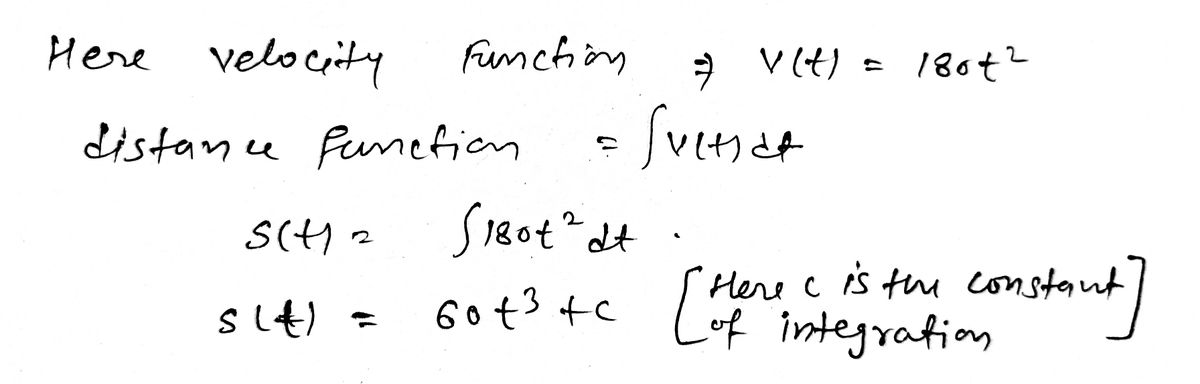 Here velocity Function ⇒ V(t) = 180t²
distance function = ∫V(t)dt
S(t) = ∫180t² dt .
s(t) = 60t³ + c [Here c is the constant
of integration]